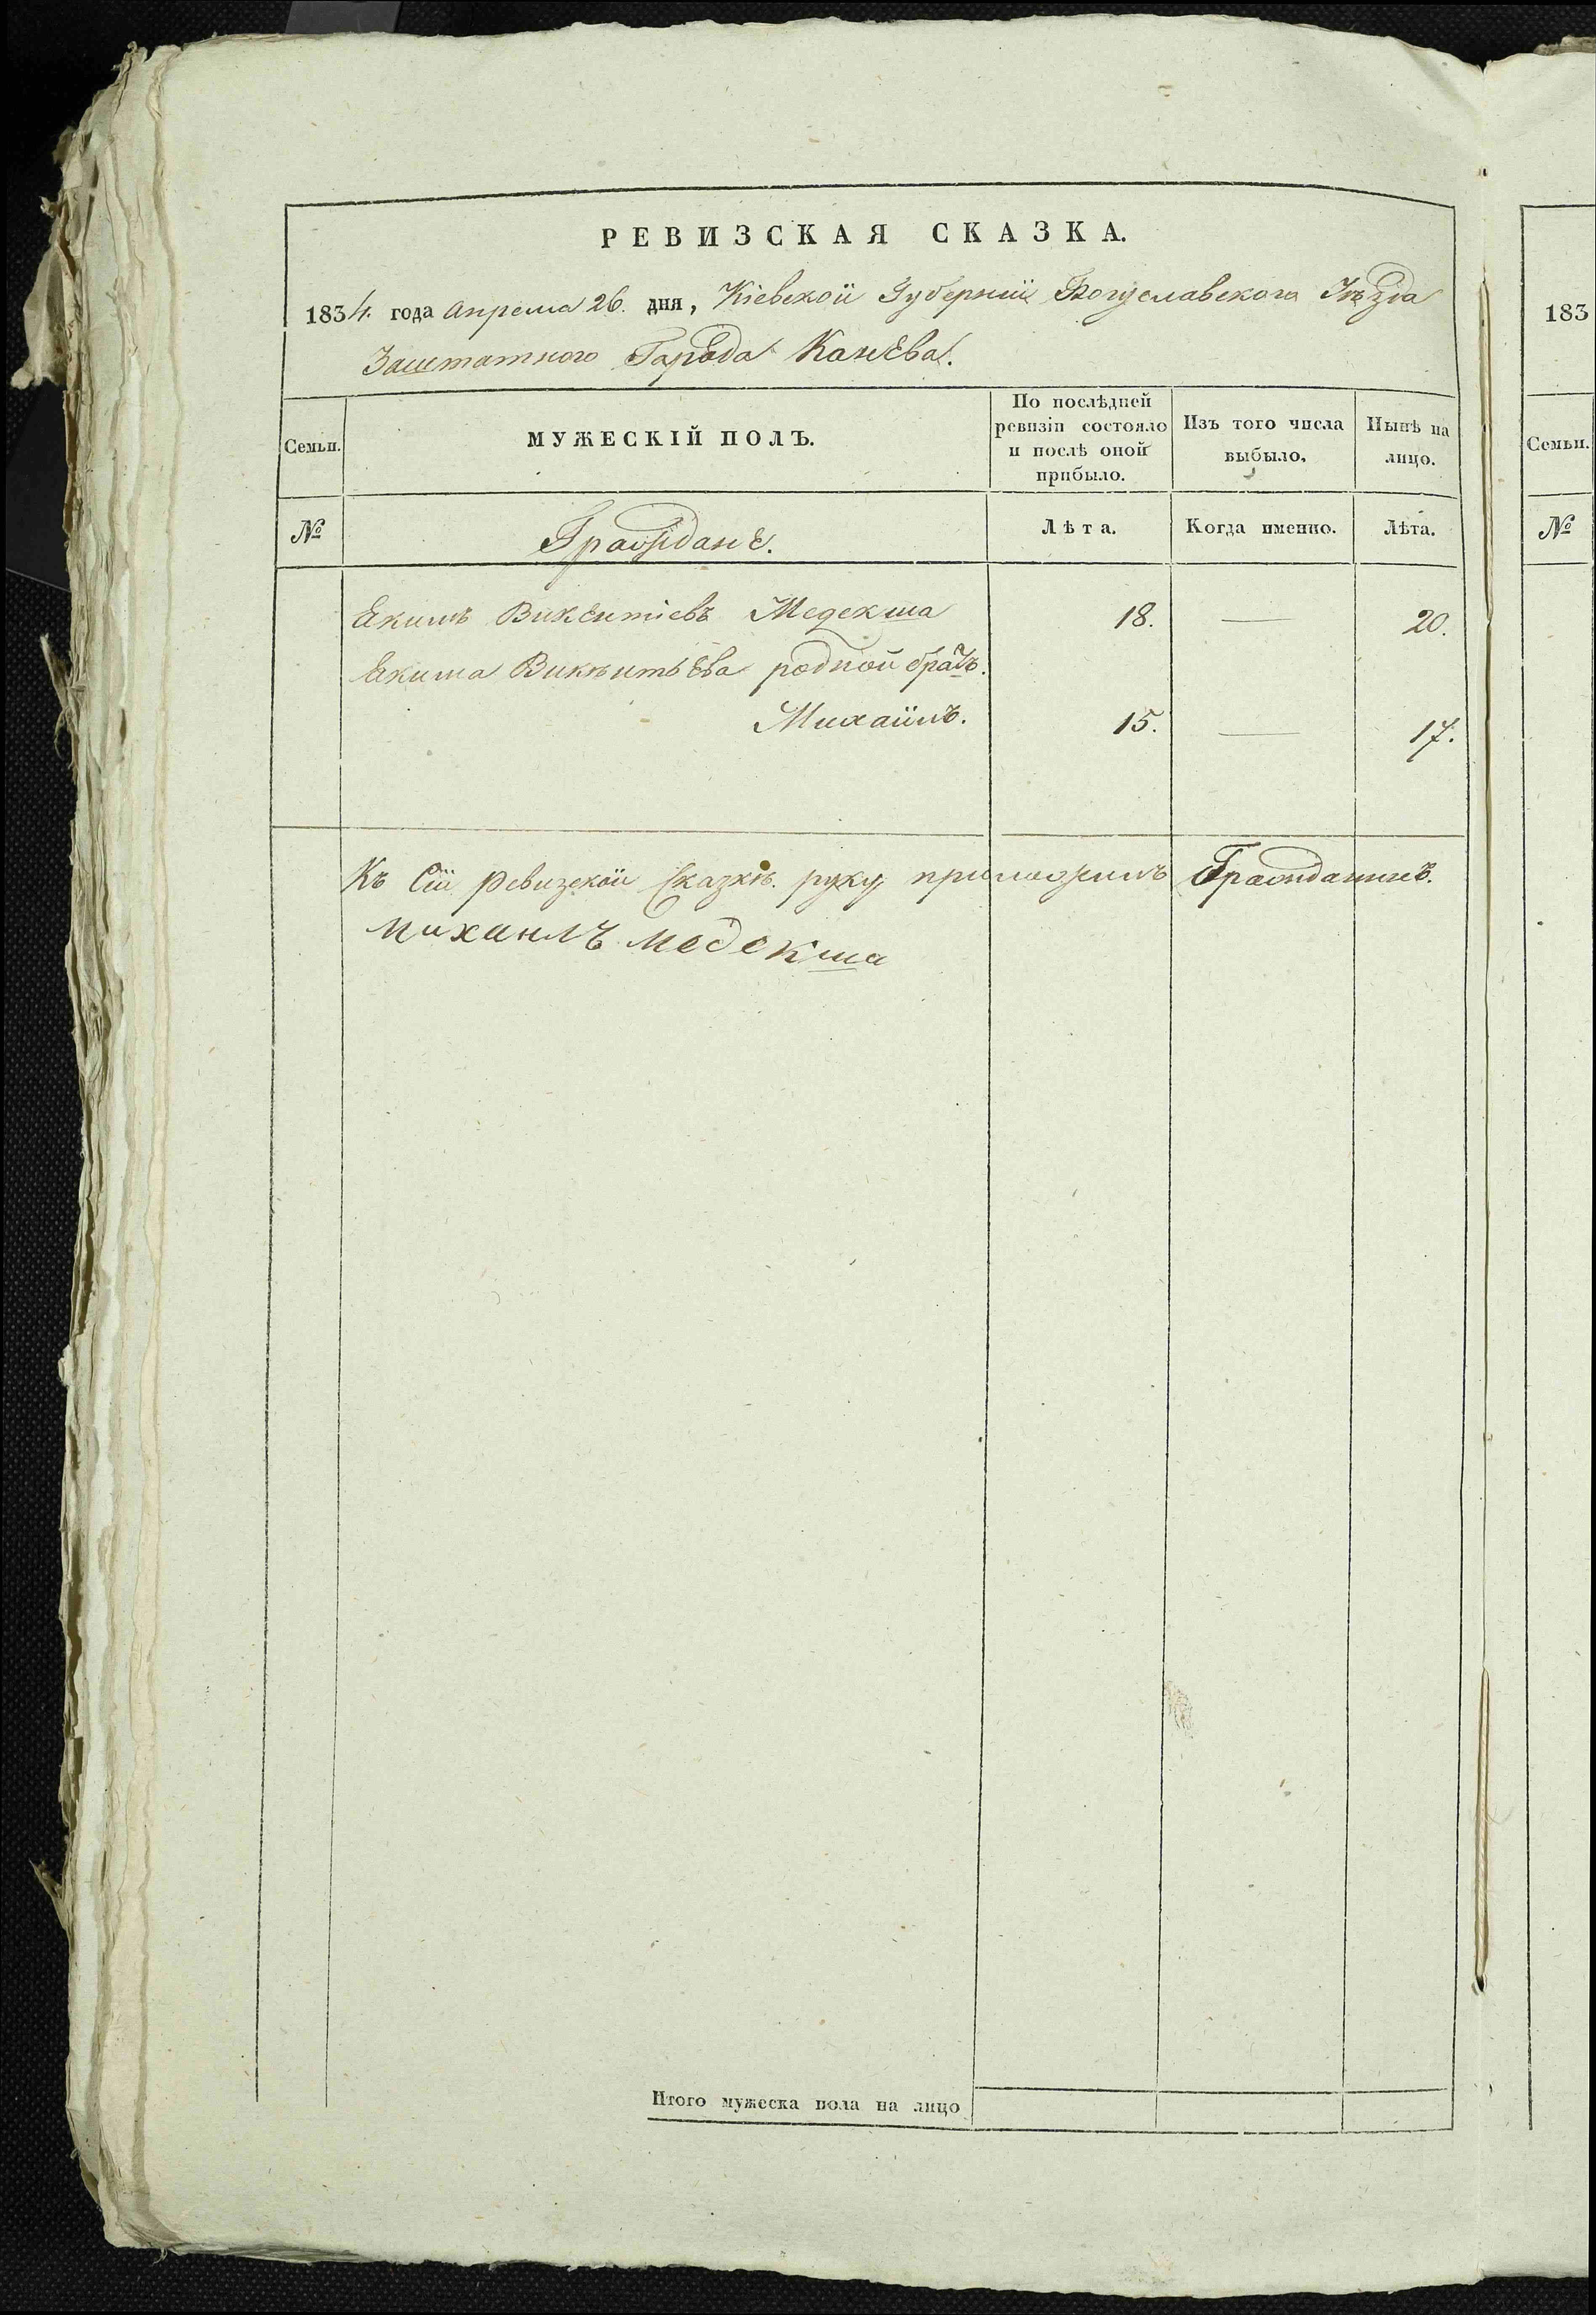 РЕВИЗСКАЯ СКАЗКА.
1834. года Апреля 26. дня, Кіевской Губерніи Богуславскаго Уѣзда
Заштатного Города Канева.
Семьи.
МУЖЕСКІЙ ПОЛЪ.
По послѣдней ревизіи состояло и послѣ оной прибыло.
Изъ того числа выбыло.
Нынѣ на лицо.
№
Граждане.
Лѣта.
Когда именно.
Лѣта.
Екимъ Викентіевъ Медекша 18. — 20.
Екима Викентьева родной братъ.
Михаилъ. 15. — 17.
Къ Сій ревизской Сказкѣ. руку приложилъ Гражданинъ.
Михаилъ Медекша
Итого мужеска пола на лицо
183
Семьи.
№